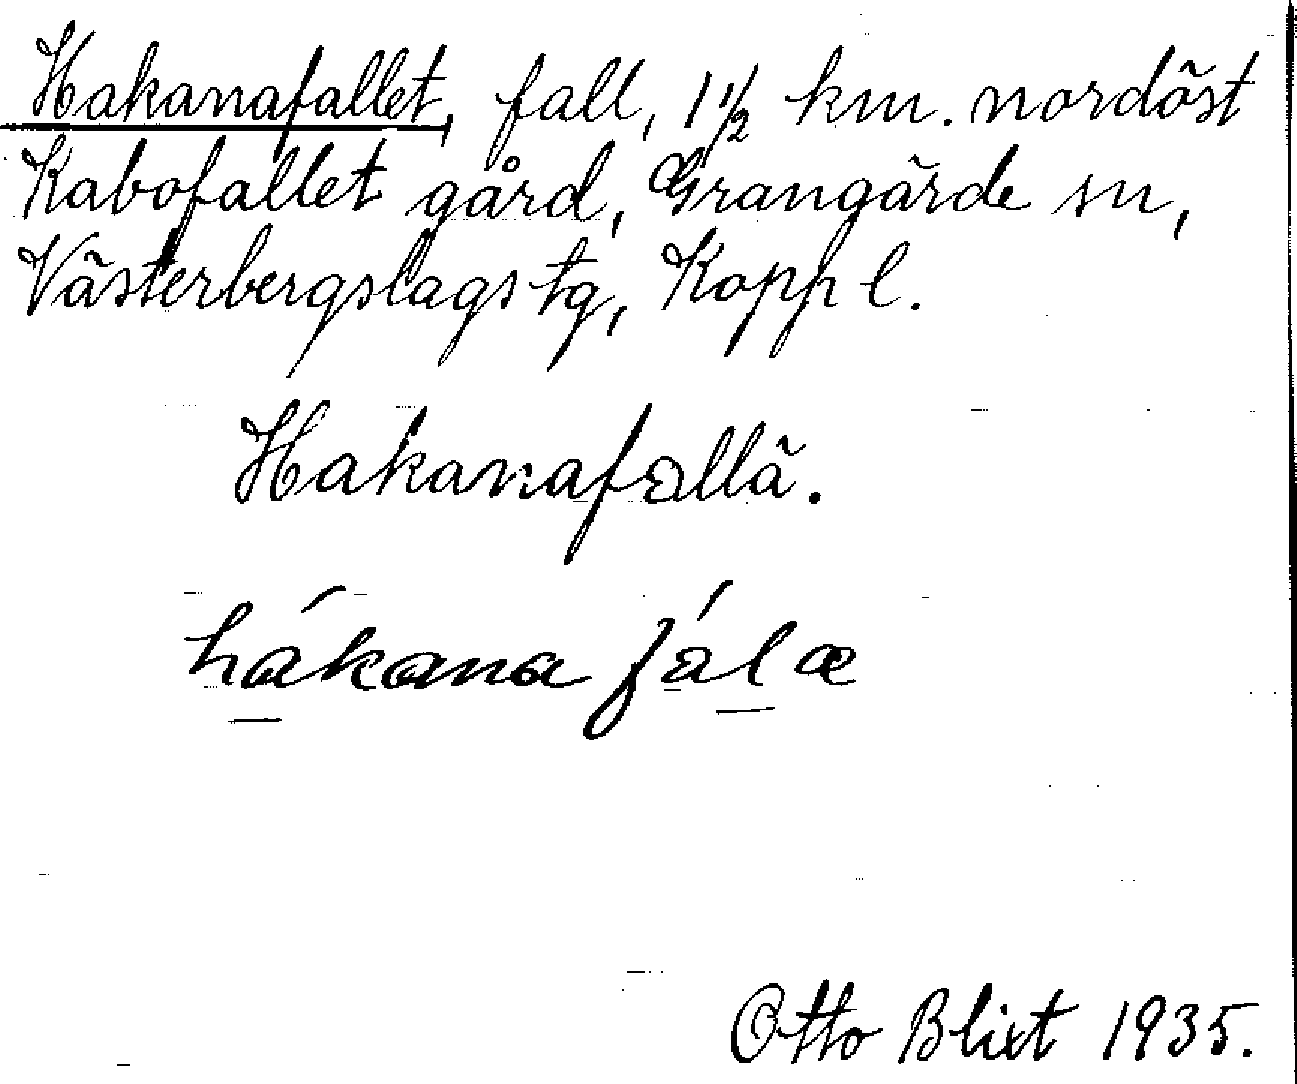 Hakanafallet, fall, 1 1/2 km. nordöst
Kabofallet gård, Grangärde sn,
Västerbergslags tg, Kopp l.
Hakanafallä.
hákana fálæ
Otto Blixt 1935.